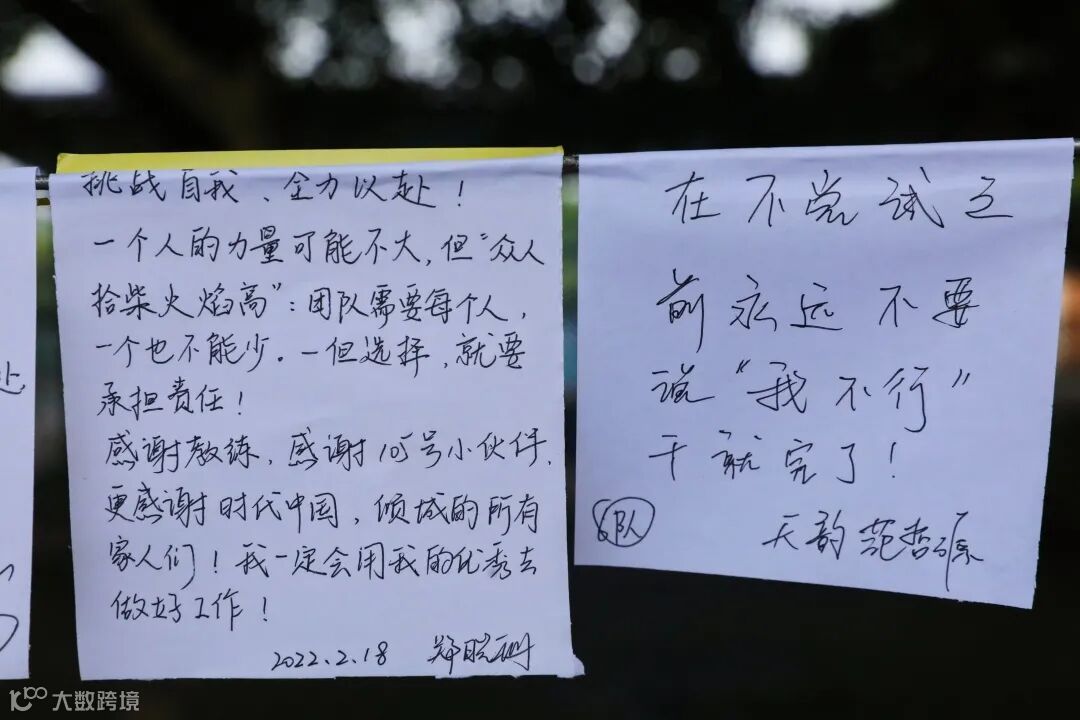 挑战自我、全力以赴！
一个人的力量可能不大，但“众人
拾柴火焰高”：团队需要每个人，
一个也不能少。一但选择，就要
承担责任！
感谢教练，感谢105号小伙伴，
更感谢时代中国，倾城的所有
家人们！我一定会用我的优秀去
做好工作！
2022.2.18 郑晓珊
在不尝试之
前永远不要
说“我不行”
干就完了！
6队
天韵 范哲源
赴
大数跨境